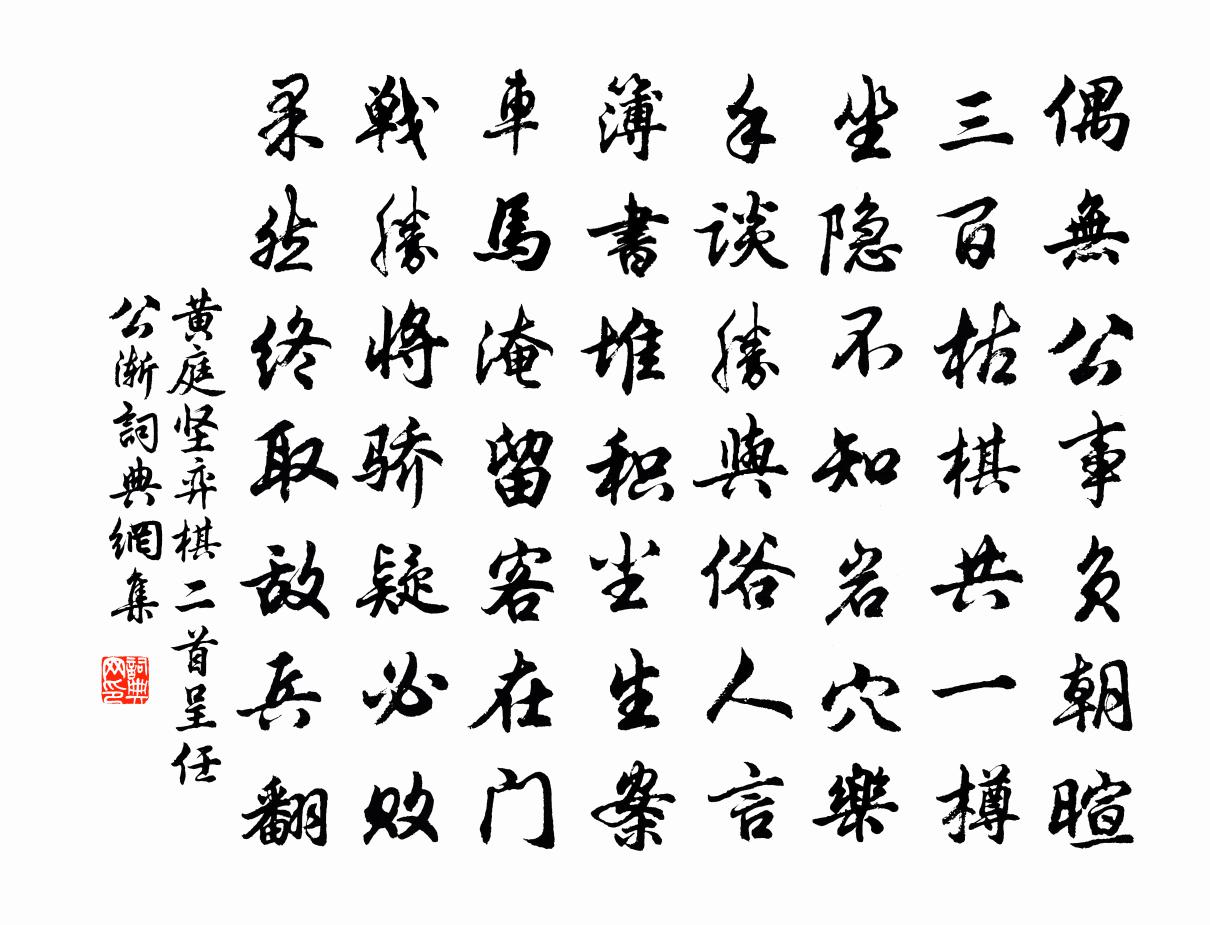 偶無公事負朝暄
三百枯棋共一樽
坐隐不知岩穴樂
手談勝與俗人言
簿書堆积尘生案
車馬淹留客在门
戦勝将骄疑必败
果然终取敌兵翻
黄庭坚弈棋二首呈任
公渐詞典網集
詞典网印